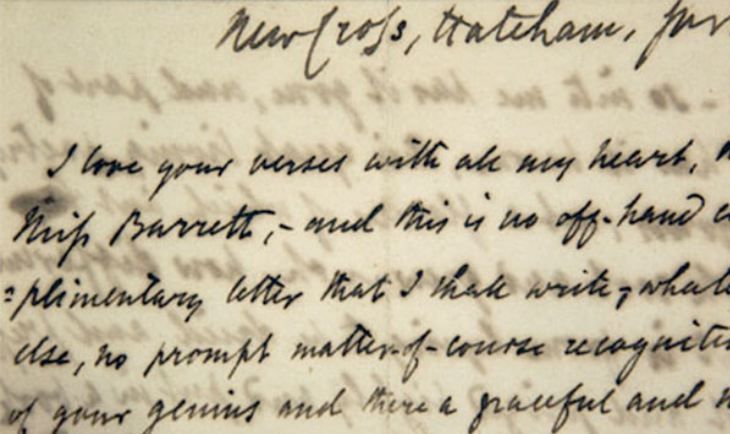 New Cross, Hatcham,
I love your verses with all my heart,
Miss Barrett,- and this is no off-hand
=plimentary letter that I shall write,-
else, no prompt matter-of-course
of your genius and there a graceful and